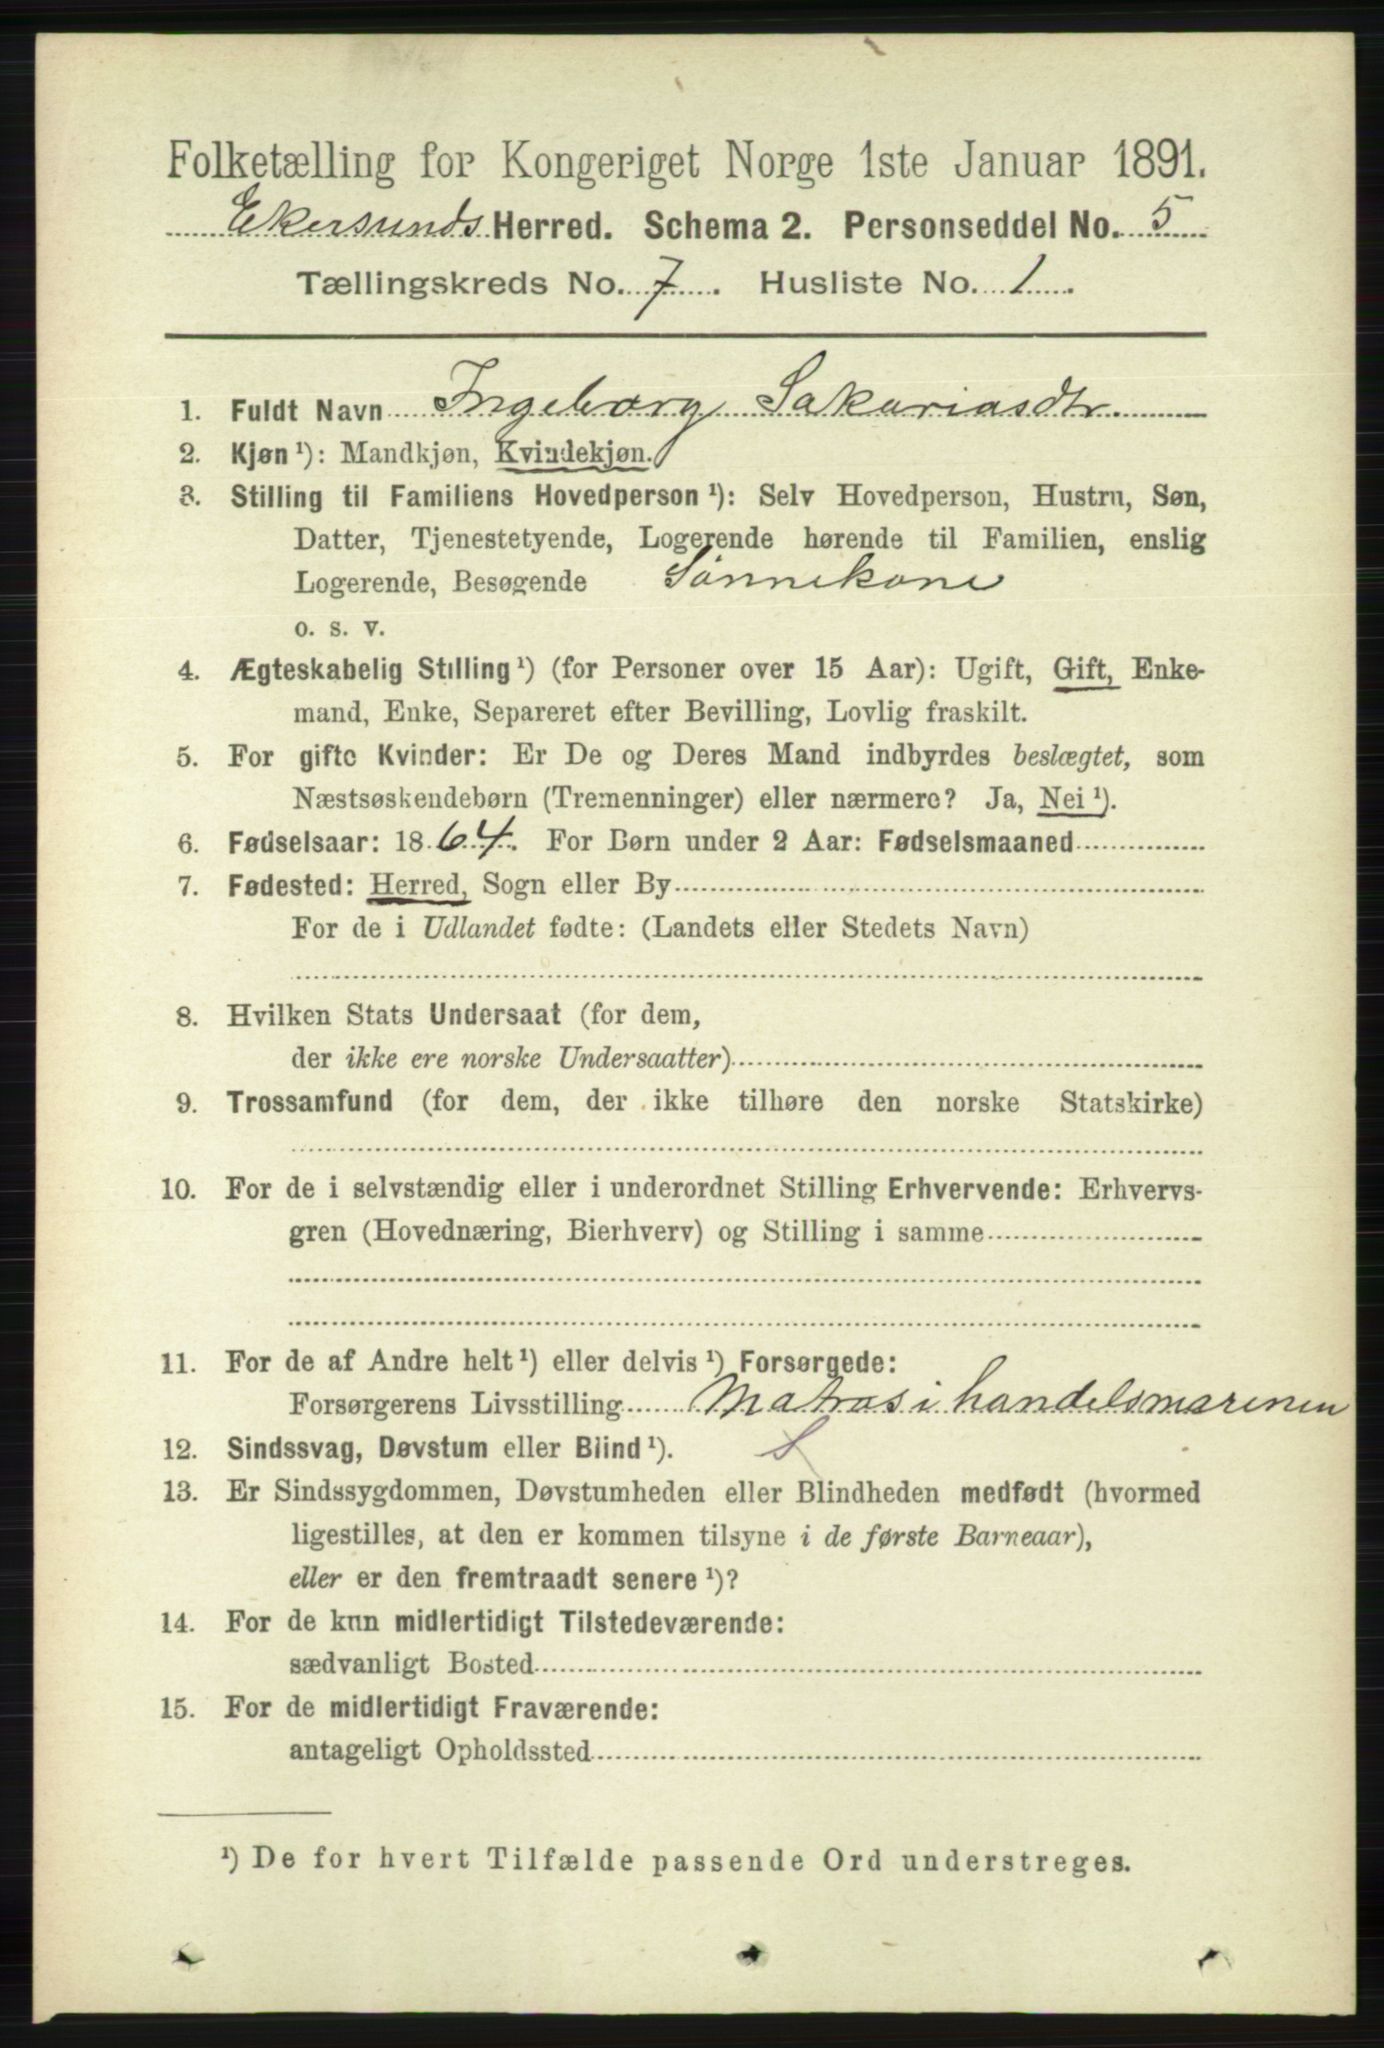 Folketælling for Kongeriget Norge 1ste Januar 1891.
Ekersunds Herred. Schema 2. Personseddel No. 5
Tællingskreds No. 7. Husliste No. 1
1. Fuldt Navn Ingeborg Sakariasdtr.
2. Kjøn ¹): Mandkjøn, Kvindekjøn.
3. Stilling til Familiens Hovedperson ¹): Selv Hovedperson, Hustru, Søn,
Datter, Tjenestetyende, Logerende hørende til Familien, enslig
Logerende, Besøgende Sønnekone
o. s. v.
4. Ægteskabelig Stilling ¹) (for Personer over 15 Aar): Ugift, Gift, Enke-
mand, Enke, Separeret efter Bevilling, Lovlig fraskilt.
5. For gifte Kvinder: Er De og Deres Mand indbyrdes beslægtet, som
Næstsøskendebørn (Tremenninger) eller nærmere? Ja, Nei ¹).
6. Fødselsaar: 1864. For Børn under 2 Aar: Fødselsmaaned
7. Fødested: Herred, Sogn eller By
For de i Udlandet fødte: (Landets eller Stedets Navn)
8. Hvilken Stats Undersaat (for dem,
der ikke ere norske Undersaatter)
9. Trossamfund (for dem, der ikke tilhøre den norske Statskirke)
10. For de i selvstændig eller i underordnet Stilling Erhvervende: Erhvervs-
gren (Hovednæring, Bierhverv) og Stilling i samme
11. For de af Andre helt ¹) eller delvis ¹) Forsørgede:
Forsørgerens Livsstilling Matros i handelsmarinen
12. Sindssvag, Døvstum eller Blind ¹).
13. Er Sindssygdommen, Døvstumheden eller Blindheden medfødt (hvormed
ligestilles, at den er kommen tilsyne i de første Barneaar),
eller er den fremtraadt senere ¹)?
14. For de kun midlertidigt Tilstedeværende:
sædvanligt Bosted
15. For de midlertidigt Fraværende:
antageligt Opholdssted
¹) De for hvert Tilfælde passende Ord understreges.